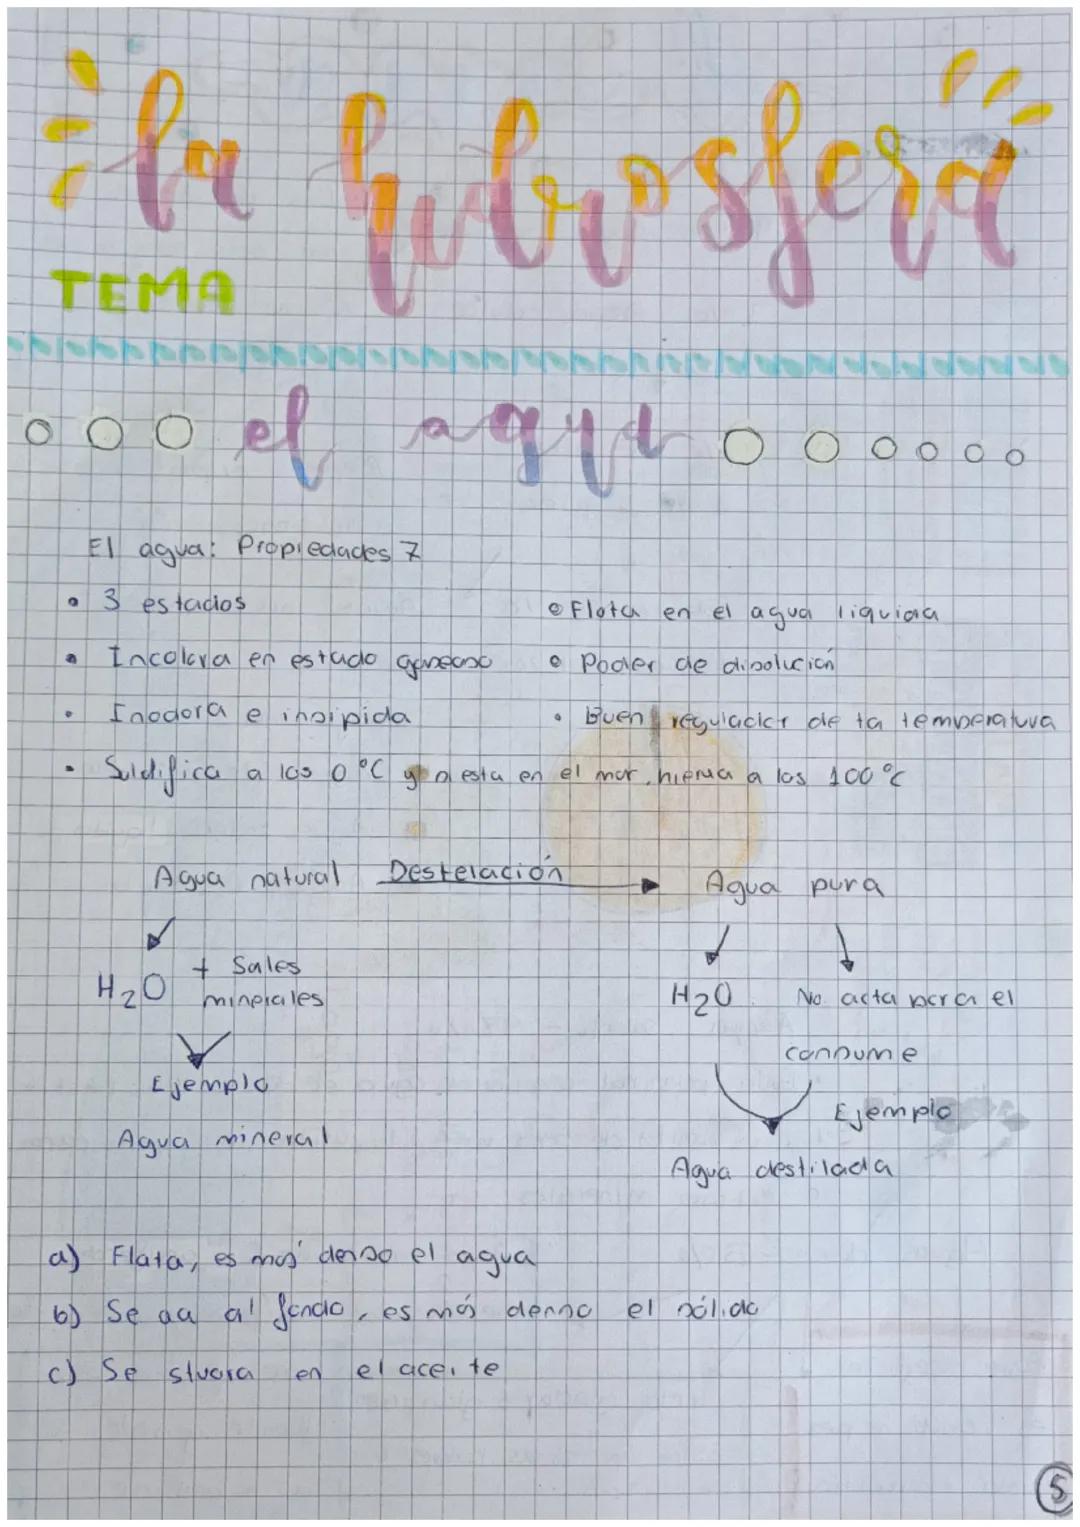 la hidrosfera
TEMA
el agua
El agua: Propiedades 7
• 3 estados
• Flota en el agua liquida
• Incolora en estado gaseoso
• Poder de disolución
• Inodora e insipida
• Buen regulador de la temperatura
• Solidifica a los 0 °C y si esta en el mar, hierva a los 100 °C
Agua natural Destelación Agua pura
H2O + Sales minerales
H2O No acta para el consume
Ejemplo
Agua mineral
Ejemplo
Agua destilada
a) Flata, es más denso el agua
b) Se va al fondo, es más denso el sólido
c) Se situara en el aceite
5